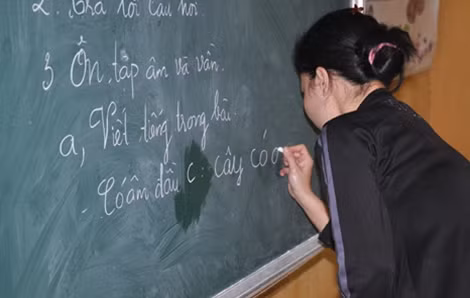 2. Trả lời câu hỏi.
3 Ôn tập âm và vần.
a, Viết tiếng trong bài.
- Có âm đầu c: cây cỏ